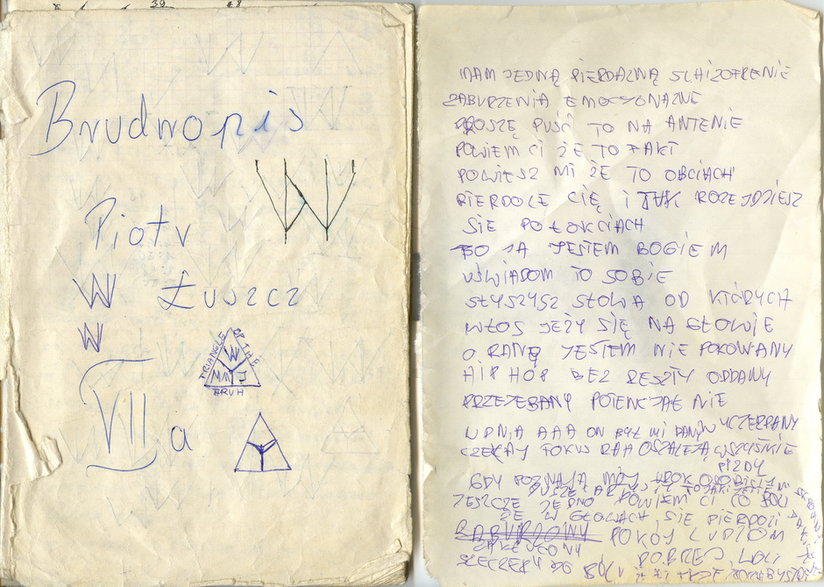 39 48
Brudnopis
W
Piotr
W Łuszcz
W
TRIANGLE OF THE
W
MMJ
BRUH
VII a
MAM JEDNĄ PIERDALNĄ SCHIZOFRENIE
ZABURZENIA EMOCJONALNE
PROSZĘ PUŚĆ TO NA ANTENIE
POWIEM CI ŻE TO FAKT
POWIESZ MI ŻE TO OBCIACH
PIERDOLE CIĘ I TAK ROZEJDZIESZ
SIE PO ŁOKCIACH
BO JA JESTEM BOGIEM
UŚWIADOM TO SOBIE
SŁYSZYSZ SŁOWA OD KTÓRYCH
WŁOS JEŻY SIĘ NA GŁOWIE
O RANY JESTEM NIE POKOWANY
HIP HOP BEZ RESZTY ODDANY
PRZEJEBANY POTENCJAŁ NIE
WYCZERPANY
U DNIA AAA ON BYŁ MI DANY
CZEKAJ FOKUS RAH OSZALEJĄ WSZYSTKIE
PIZDY
GDY POZNAJĄ MÓJ UROK OSOBISTY
JESZCZE JEDNO POWIEM CI CO BOLI
ŻE W GŁOWACH SIE PIERDOLI
ZABURZONY POKÓJ LUDZIOM
ZAKŁÓCONY DOBREJ WOLI
SZCZERY DO BÓLU